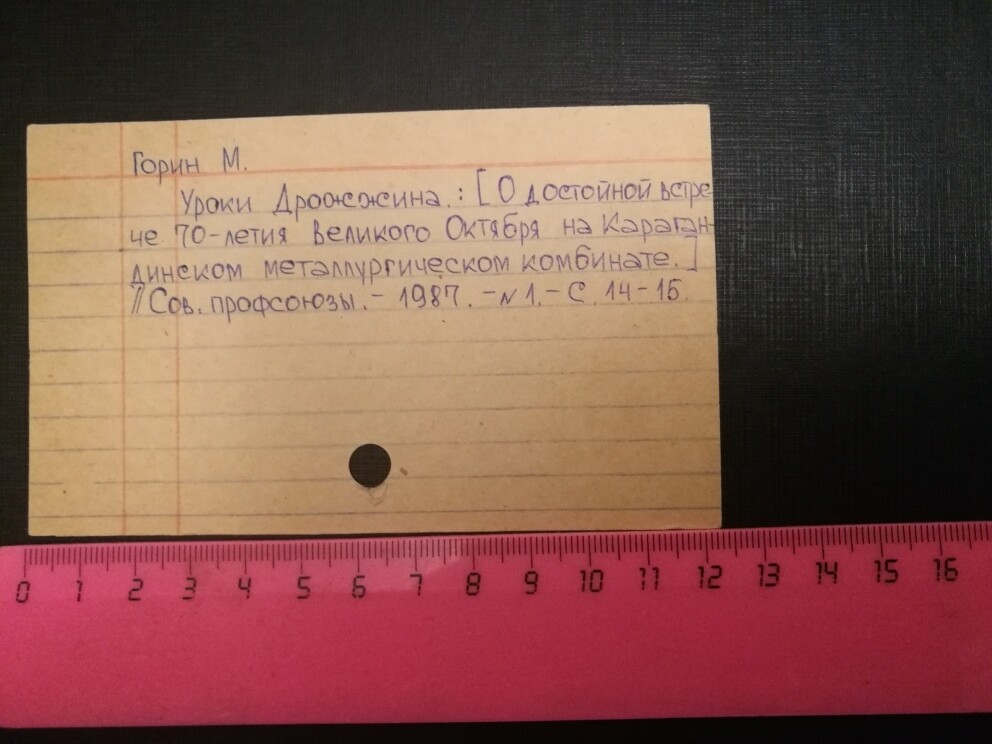 Горин М.
Уроки Дрожжина.: [О достойной встре-
че 70-летия великого Октября на Караган-
динском металлургическом комбинате.]
// Сов. профсоюзы. - 1987. - N 1. - С. 14-15.
0 1 2 3 4 5 6 7 8 9 10 11 12 13 14 15 16